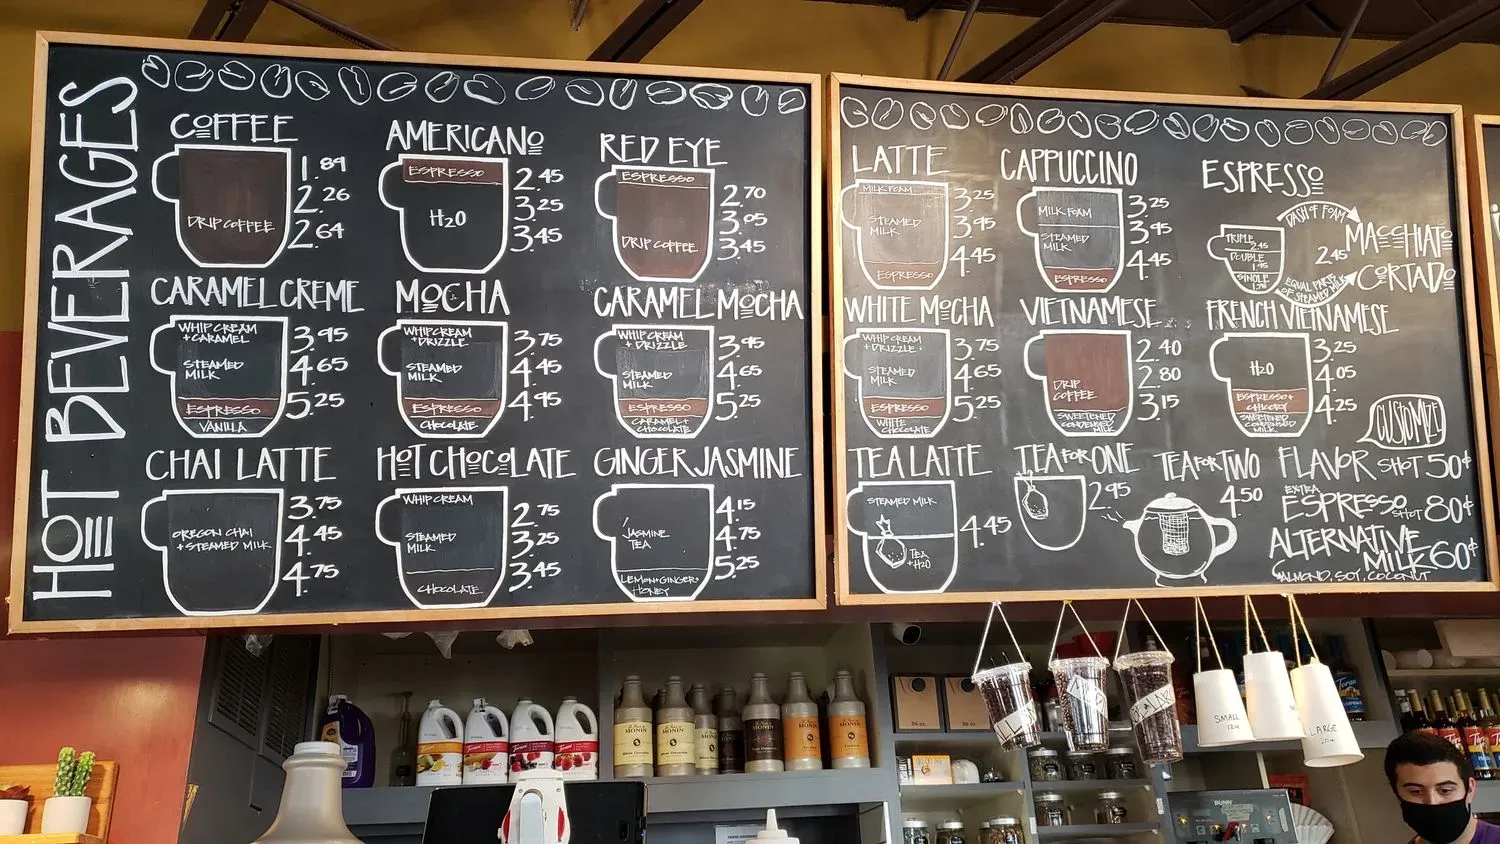 HOT BEVERAGES
COFFEE
DRIP COFFEE
1.89
2.26
2.64
AMERICANO
ESPRESSO
H2O
2.45
3.25
3.45
RED EYE
ESPRESSO
DRIP COFFEE
2.70
3.05
3.45
CARAMEL CREME
WHIP CREAM
+ CARAMEL
STEAMED
MILK
ESPRESSO
VANILLA
3.95
4.65
5.25
MOCHA
WHIP CREAM
+ DRIZZLE
STEAMED
MILK
ESPRESSO
CHOCOLATE
3.75
4.45
4.95
CARAMEL MOCHA
WHIP CREAM
+ DRIZZLE
STEAMED
MILK
ESPRESSO
CARAMEL +
CHOCOLATE
3.95
4.65
5.25
CHAI LATTE
OREGON CHAI
+ STEAMED MILK
3.75
4.45
4.75
HOT CHOCOLATE
WHIP CREAM
STEAMED
MILK
CHOCOLATE
2.75
3.25
3.45
GINGER JASMINE
JASMINE
TEA
LEMON + GINGER +
HONEY
4.15
4.75
5.25
LATTE
MILK FOAM
STEAMED
MILK
ESPRESSO
3.25
3.95
4.45
CAPPUCCINO
MILK FOAM
STEAMED
MILK
ESPRESSO
3.25
3.95
4.45
ESPRESSO
TRIPLE
2.45
DOUBLE
1.95
SINGLE
DASH OF FOAM
MACCHIATO
2.45
CORTADO
EQUAL PARTS
OF STEAMED MILK
WHITE MOCHA
WHIP CREAM
+ DRIZZLE
STEAMED
MILK
ESPRESSO
WHITE
CHOCOLATE
3.75
4.65
5.25
VIETNAMESE
DRIP
COFFEE
SWEETENED
CONDENSED
MILK
2.40
2.80
3.15
FRENCH VIETNAMESE
H2O
ESPRESSO +
CHICORY
SWEETENED
CONDENSED
MILK
3.25
4.05
4.25
TEA LATTE
STEAMED MILK
TEA
+ H2O
4.45
TEA FOR ONE
2.95
TEA FOR TWO
4.50
CUSTOMIZE
FLAVOR SHOT 50¢
EXTRA
ESPRESSO SHOT 80¢
ALTERNATIVE
MILK 60¢
ALMOND, SOY, COCONUT
MONIN
MONIN
MONIN
MONIN
MONIN
MONIN
SMALL
12oz
LARGE
20oz
Torani
BUNN